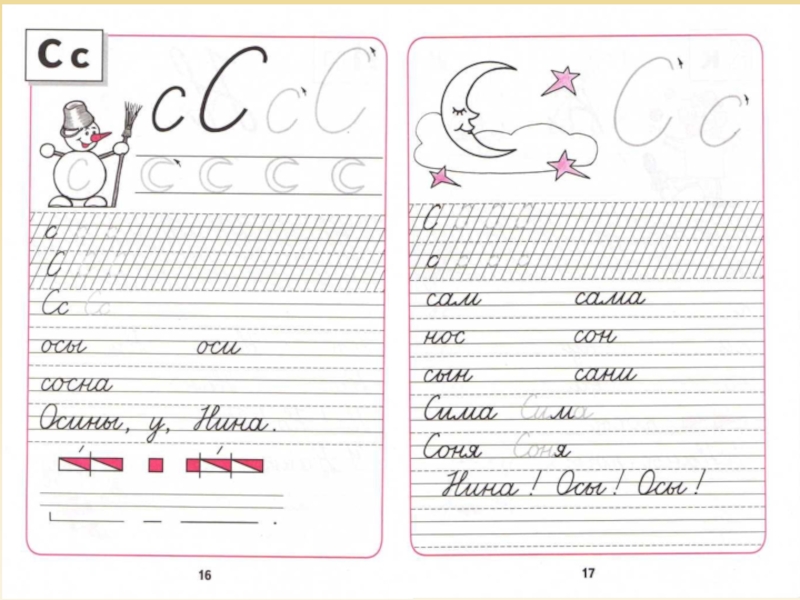 Сс
с С с С
С С С С С
с
С
Сс Сс
осы оси
сосна
Осины, у, Нина.
16
С с
С С С С
с с с с
сам сама
нос сон
сын сани
Сима Сима
Соня Соня
Нина! Осы! Осы!
17